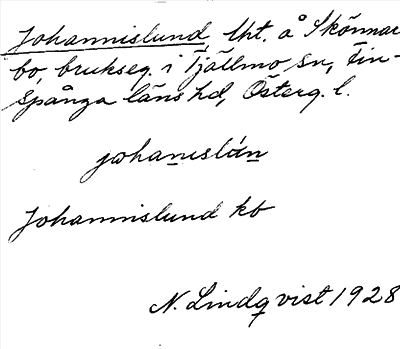 Johannislund, lht. å Skönnar-
bo, brukseg. i Tjällmo sn, Fin-
spånga läns hd, Österg. l.
johanislún
Johannislund kb
N. Lindqvist 1928